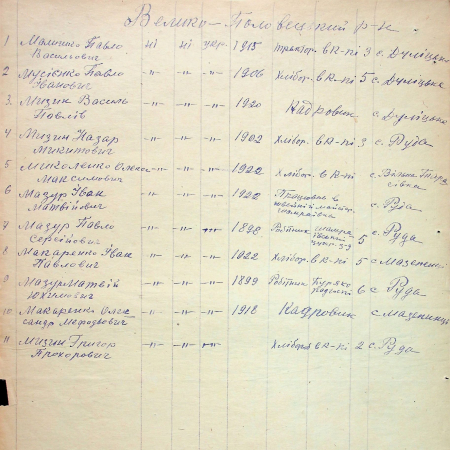 Велико-Половецкий р-н
1 Малишко Павло Васильович ні ні укр. 1915 трактор. в к-пі 3 с. Дуліцьке
2 Мусієнко Павло Іванович -"- -"- -"- 1906 Хлібор. в к-пі 5 с. Дуліцьке
3. Мизин Василь Павлів -"- -"- -"- 1920 Кадровик с. Дуліцьке
4 Мизин Назар Микитович -"- -"- -"- 1902 Хлібор. в к-пі 3 с. Руда
5 Миколенко Олекса Максимович -"- -"- -"- 1922 Хлібор. в к-пі с. Вільна Тарасівка
6 Мазур Іван Матвійович -"- -"- -"- 1922 Працював в с. Руда
7 Мазур Павло Сергійович -"- -"- -"- 1898 Робітник 5 с. Руда
8 Макаренко Іван Павлович -"- -"- -"- 1922 Хлібор. в к-пі 5 с. Мазепенці
9 Мазур Матвій Юхимович -"- -"- -"- 1899 Робітник 6 с. Руда
10 Макаренко Олександр Мефодьович -"- -"- -"- 1918 Кадровик с. Мазепинці
11 Мизин Григор Прохорович -"- -"- -"- Хлібороб в к-пі 2 с. Руда